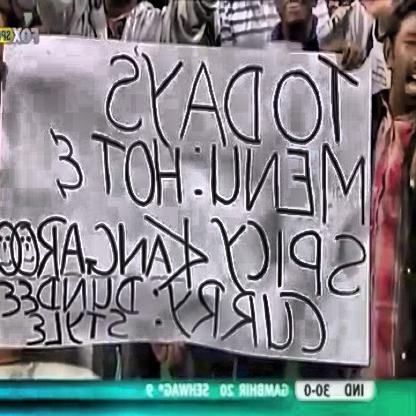 FOX SP
TODAY'S
MENU: HOT &
SPICY KANGAROO
CURRY. DUNDEE
STYLE
IND 30-0 GAMBHIR 20 SEHWAG* 9